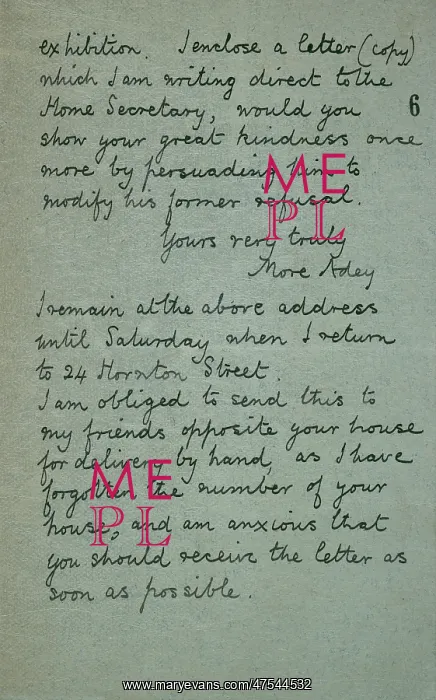 exhibition. I enclose a letter (copy)
which I am writing direct to the
Home Secretary, would you
6
show your great kindness once
more by persuading him to
modify his former refusal.
Yours very truly
More Adey
I remain at the above address
until Saturday when I return
to 24 Hornton Street.
I am obliged to send this to
my friends opposite your house
for delivery by hand, as I have
forgotten the number of your
house, and am anxious that
you should receive the letter as
soon as possible.
ME
PL
ME
PL
www.maryevans.com/47544532